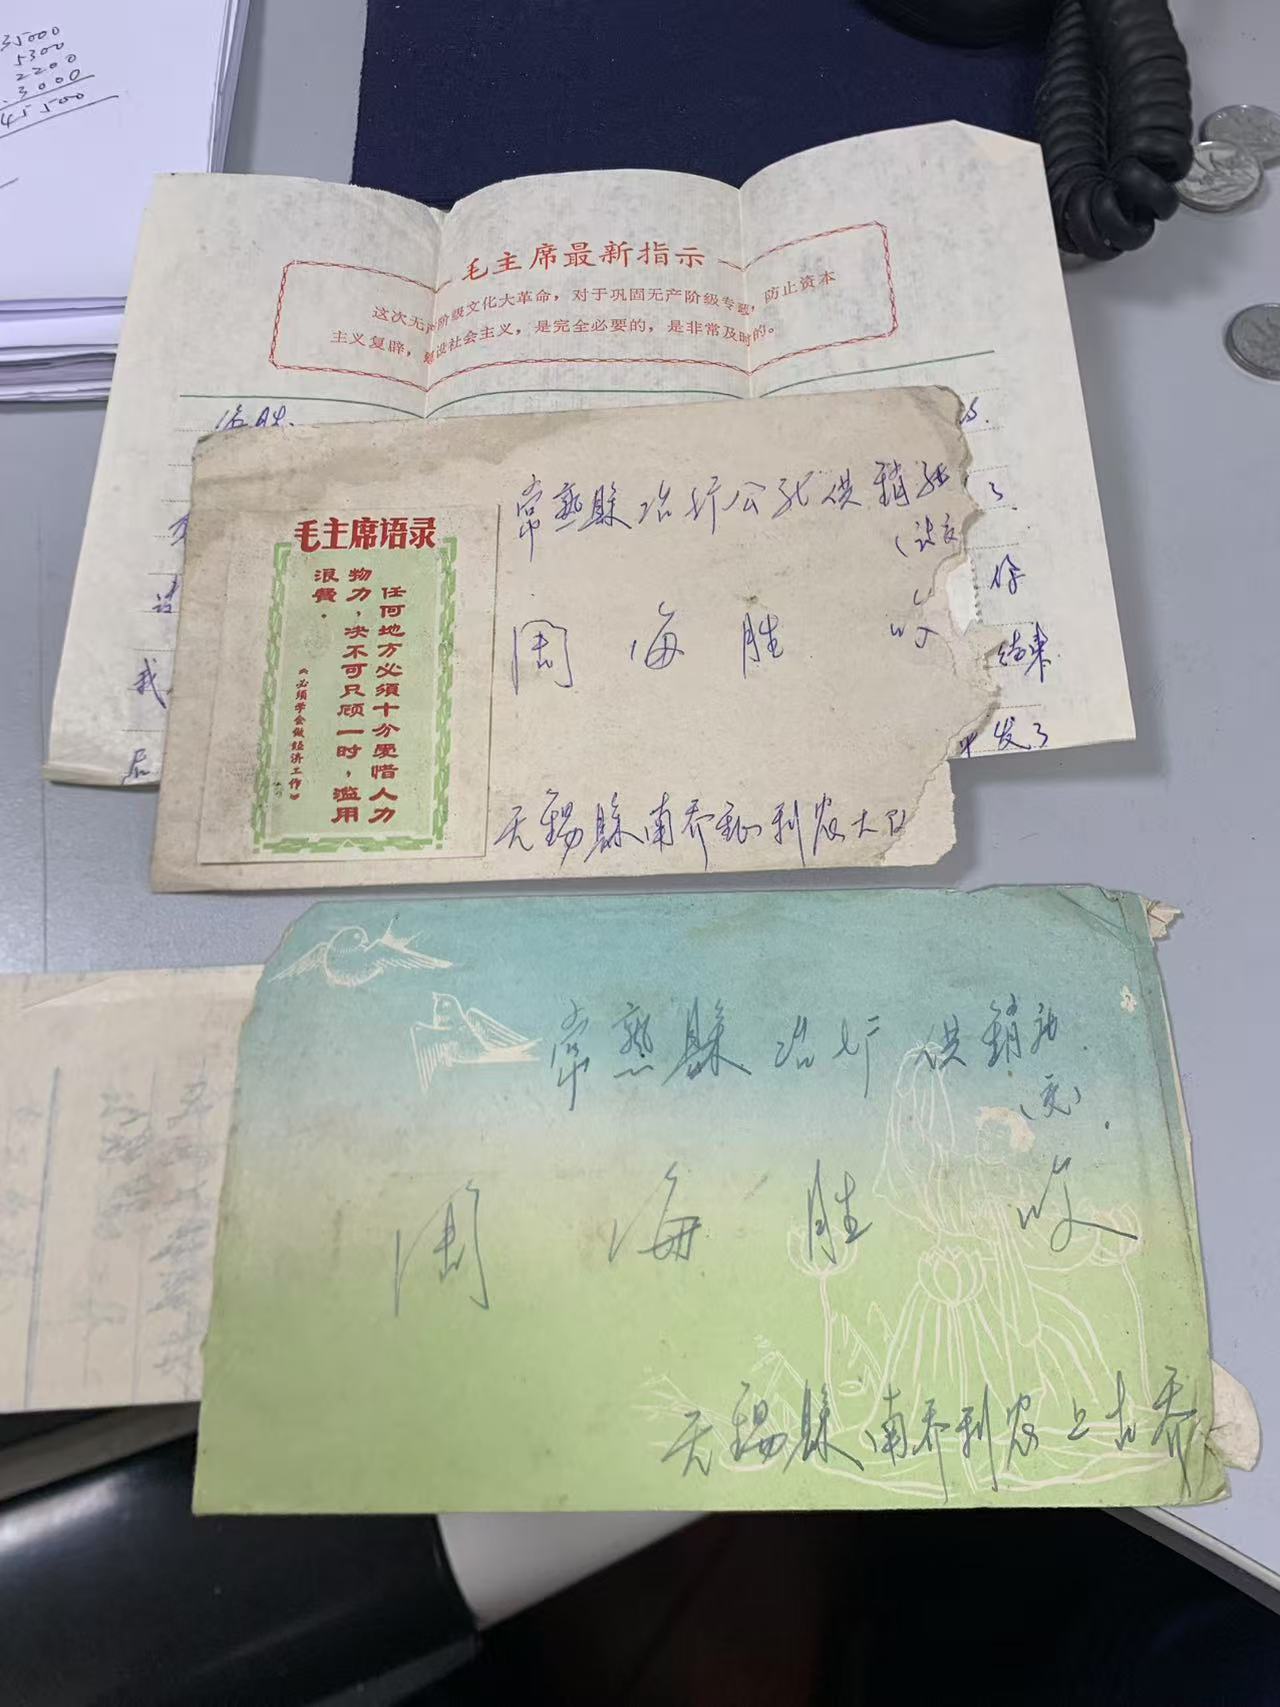 35000
5300
2200
3000
45500
毛主席最新指示
这次无产阶级文化大革命，对于巩固无产阶级专政，防止资本
主义复辟，建设社会主义，是完全必要的，是非常及时的。
海胜
你
我
结束
后
发了
常熟縣冶圩公社供銷社
周海胜 收
无錫縣南乔镇利农大队
毛主席语录
任何地方必须十分爱惜人力
物力，决不可只顾一时，滥用
浪费。
《必须学会做经济工作》
常熟縣冶圩供銷社
（交）
周海胜 收
无錫縣南乔利农上古乔